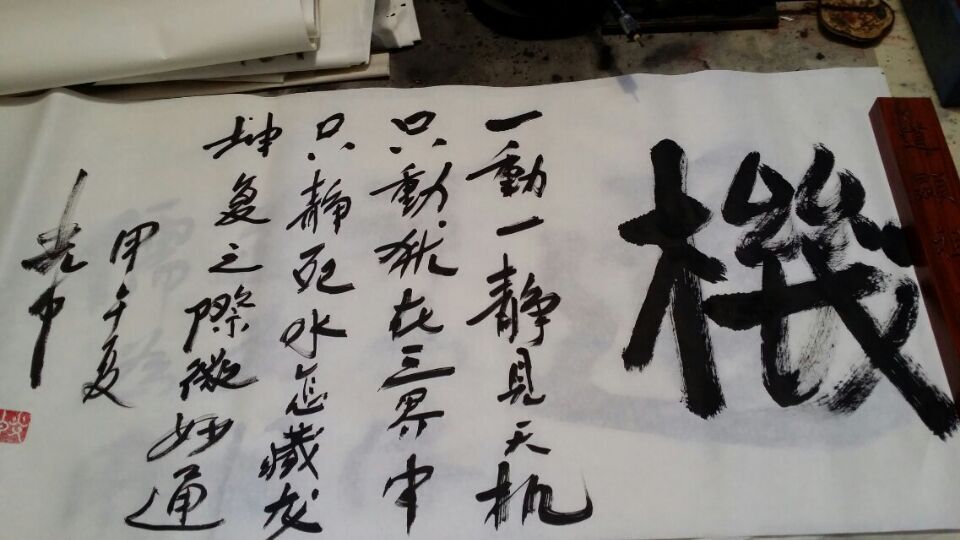 機
一動一静見天机
只動犹在三界中
只静死水怎藏龙
坤复之際微妙通
甲午夏
光中